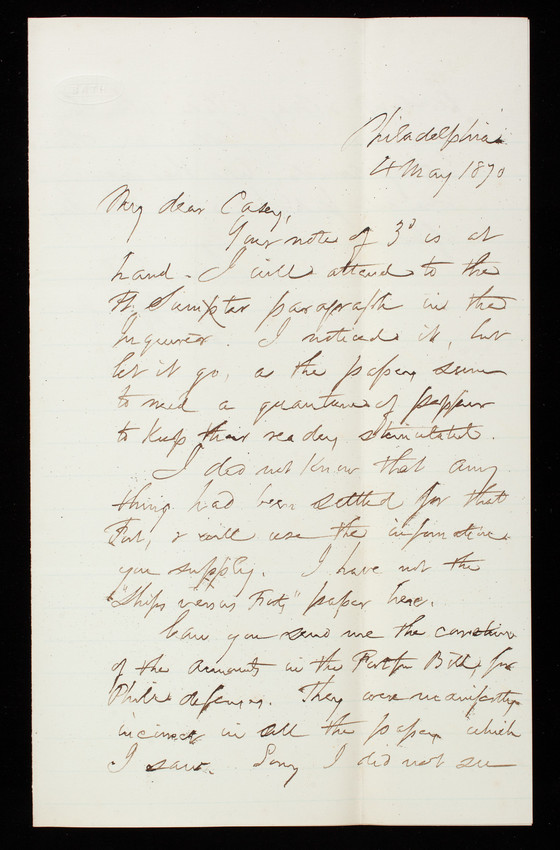 Philadelphia
4 May 1870
My dear Casey,
Your note of 3d is at
hand. I will attend to the
Ft. Sumpter paragraph in the
Inquirer. I noticed it, but
let it go, as the papers seem
to need a quantum of pepper
to keep their readers stimulated.
I did not know that any
thing had been settled for that
Fort, & will use the information
you supply. I have not the
"Ships versus Forts" paper here.
Can you send me the
of the amounts in the Fortfn Bill, for
Phila defenses. They were manifestly
incorrect in all the papers which
I saw. Sorry I did not see